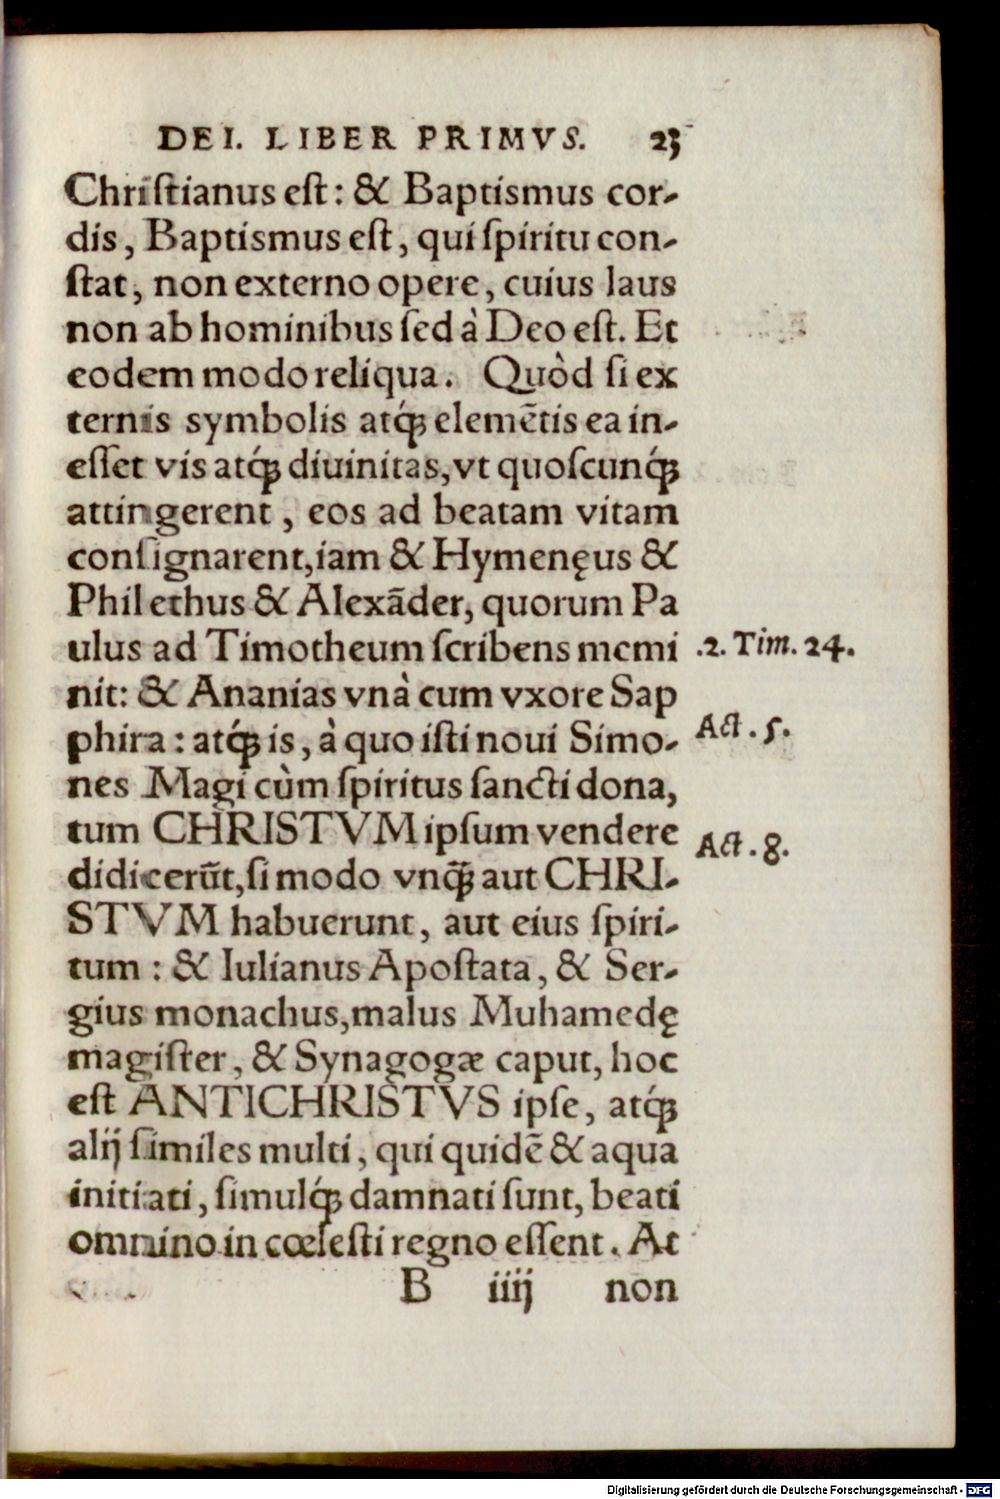 DEI. LIBER PRIMVS. 23
Chriſtianus eſt: & Baptismus cor-
dis, Baptismus eſt, qui ſpiritu con-
ſtat, non externo opere, cuius laus
non ab hominibus ſed à Deo eſt. Et
eodem modo reliqua. Quòd ſi ex
ternis symbolis atq́ꝫ elemẽtis ea in-
eſſet vis atq́ꝫ diuinitas, vt quoſcunq́ꝫ
attingerent, eos ad beatam vitam
conſignarent, iam & Hymenęus &
Philethus & Alexãder, quorum Pa
ulus ad Timotheum ſcribens memi
.2. Tim. 24.
nit: & Ananias vnà cum vxore Sap
phira: atq́ꝫ is, à quo iſti noui Simo-
Act. 5.
nes Magi cùm ſpiritus ſancti dona,
tum CHRISTVM ipſum vendere
Act. 8.
didicerũt, ſi modo vnq̃ꝫ aut CHRI-
STVM habuerunt, aut eius ſpiri-
tum: & Iulianus Apoſtata, & Ser-
gius monachus, malus Muhamedę
magiſter, & Synagogæ caput, hoc
eſt ANTICHRISTVS ipſe, atq́ꝫ
alij ſimiles multi, qui quidẽ & aqua
initiati, ſimulq́ꝫ damnati ſunt, beati
omnino in cœleſti regno eſſent. At
B iiij non
Digitalisierung gefördert durch die Deutsche Forschungsgemeinschaft - DFG